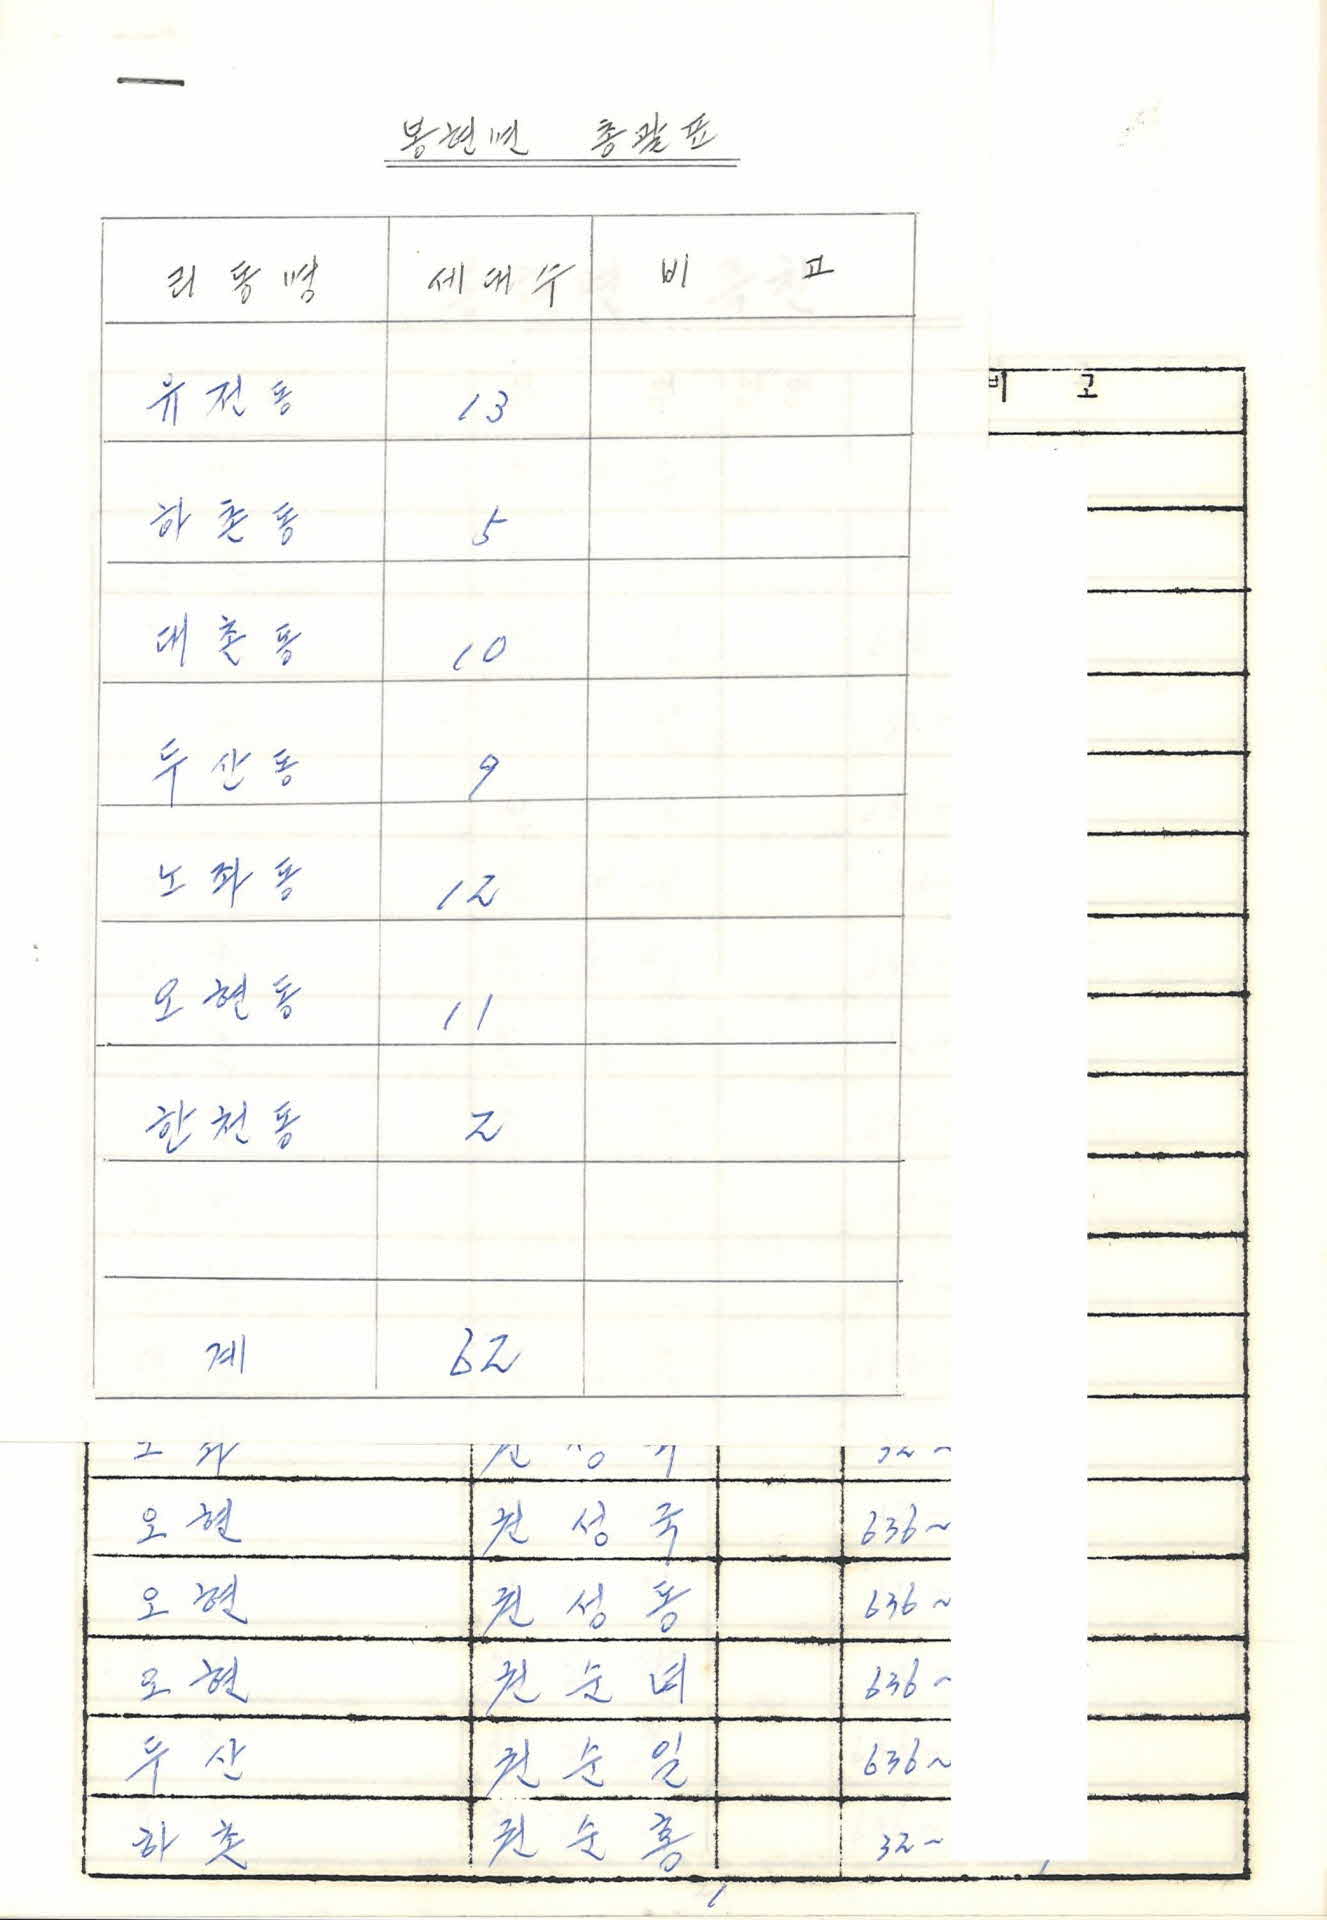 봉현면 총괄표
리동명 세대수 비고
유전동 13
하촌동 5
대촌동 10
두산동 9
노좌동 12
오현동 11
한천동 2
계 62
비 고
노좌 권성 32~
오현 권성국 636~
오현 권성동 636~
오현 권순녀 636~
두산 권순일 636~
하촌 권순흥 32~
1